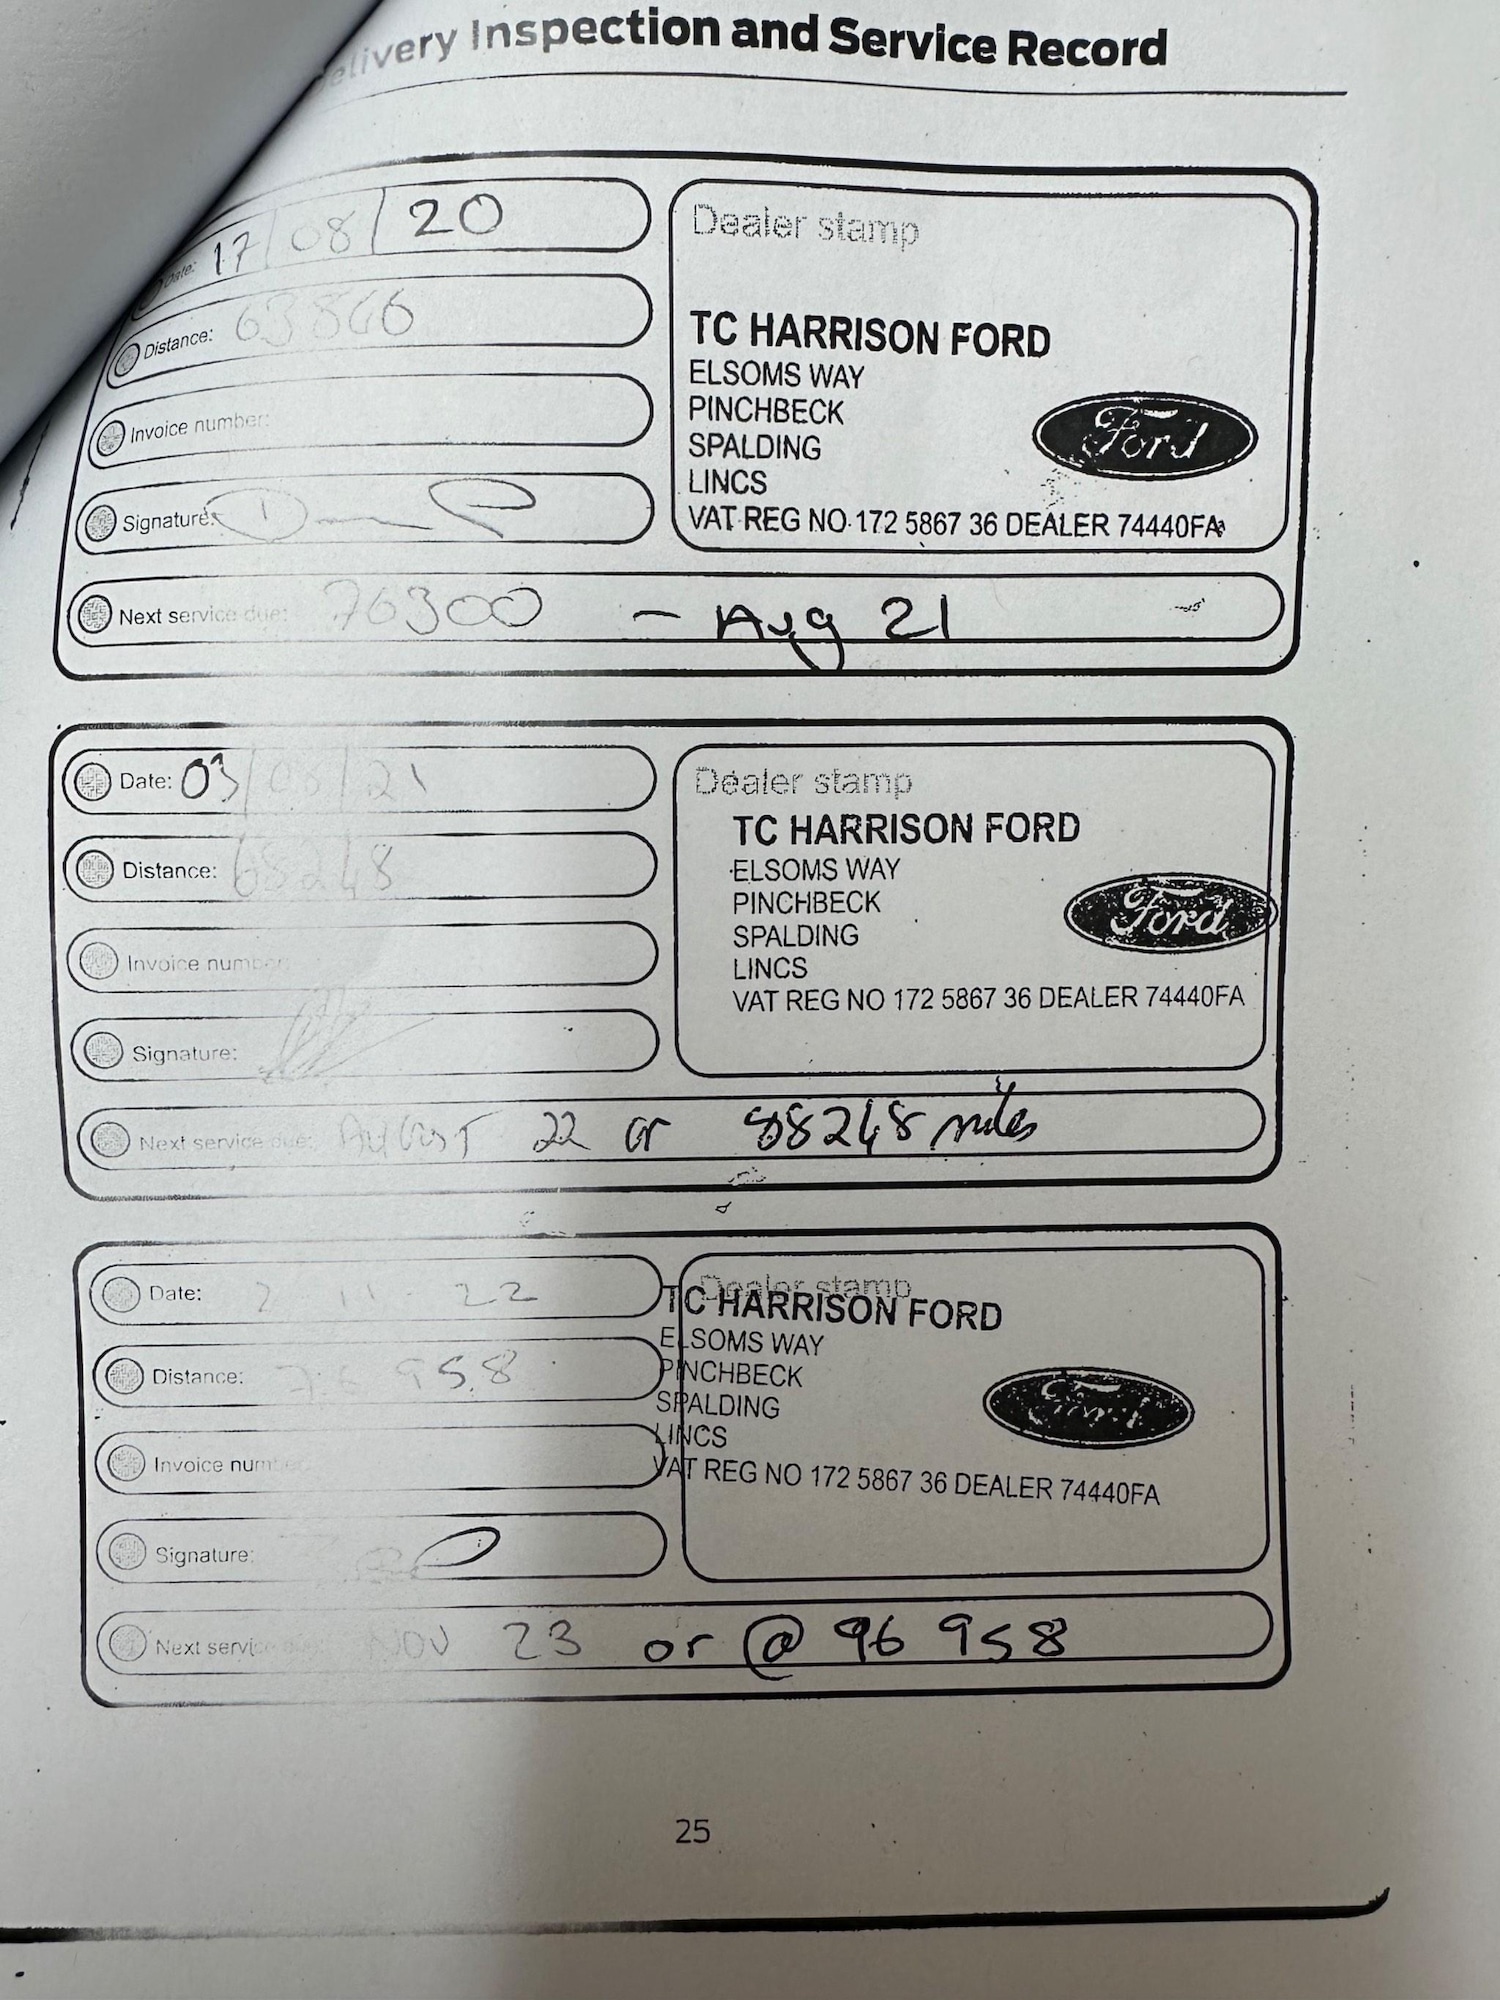 Delivery Inspection and Service Record
Date: 17/08/20
Distance: 63866
Invoice number:
Signature:
Next service due: 76300 - Aug 21
Dealer stamp
TC HARRISON FORD
ELSOMS WAY
PINCHBECK
SPALDING
LINCS
VAT REG NO 172 5867 36 DEALER 74440FA
Ford
Date: 03/08/21
Distance: 68248
Invoice number
Signature:
Next service due: AUGUST 22 or 88248 miles
Dealer stamp
TC HARRISON FORD
ELSOMS WAY
PINCHBECK
SPALDING
LINCS
VAT REG NO 172 5867 36 DEALER 74440FA
Ford
Date: 2 11 - 22
Distance: 76 958
Invoice number
Signature:
Next service due: NOV 23 or @ 96 958
Dealer stamp
TC HARRISON FORD
ELSOMS WAY
PINCHBECK
SPALDING
LINCS
VAT REG NO 172 5867 36 DEALER 74440FA
Ford
25